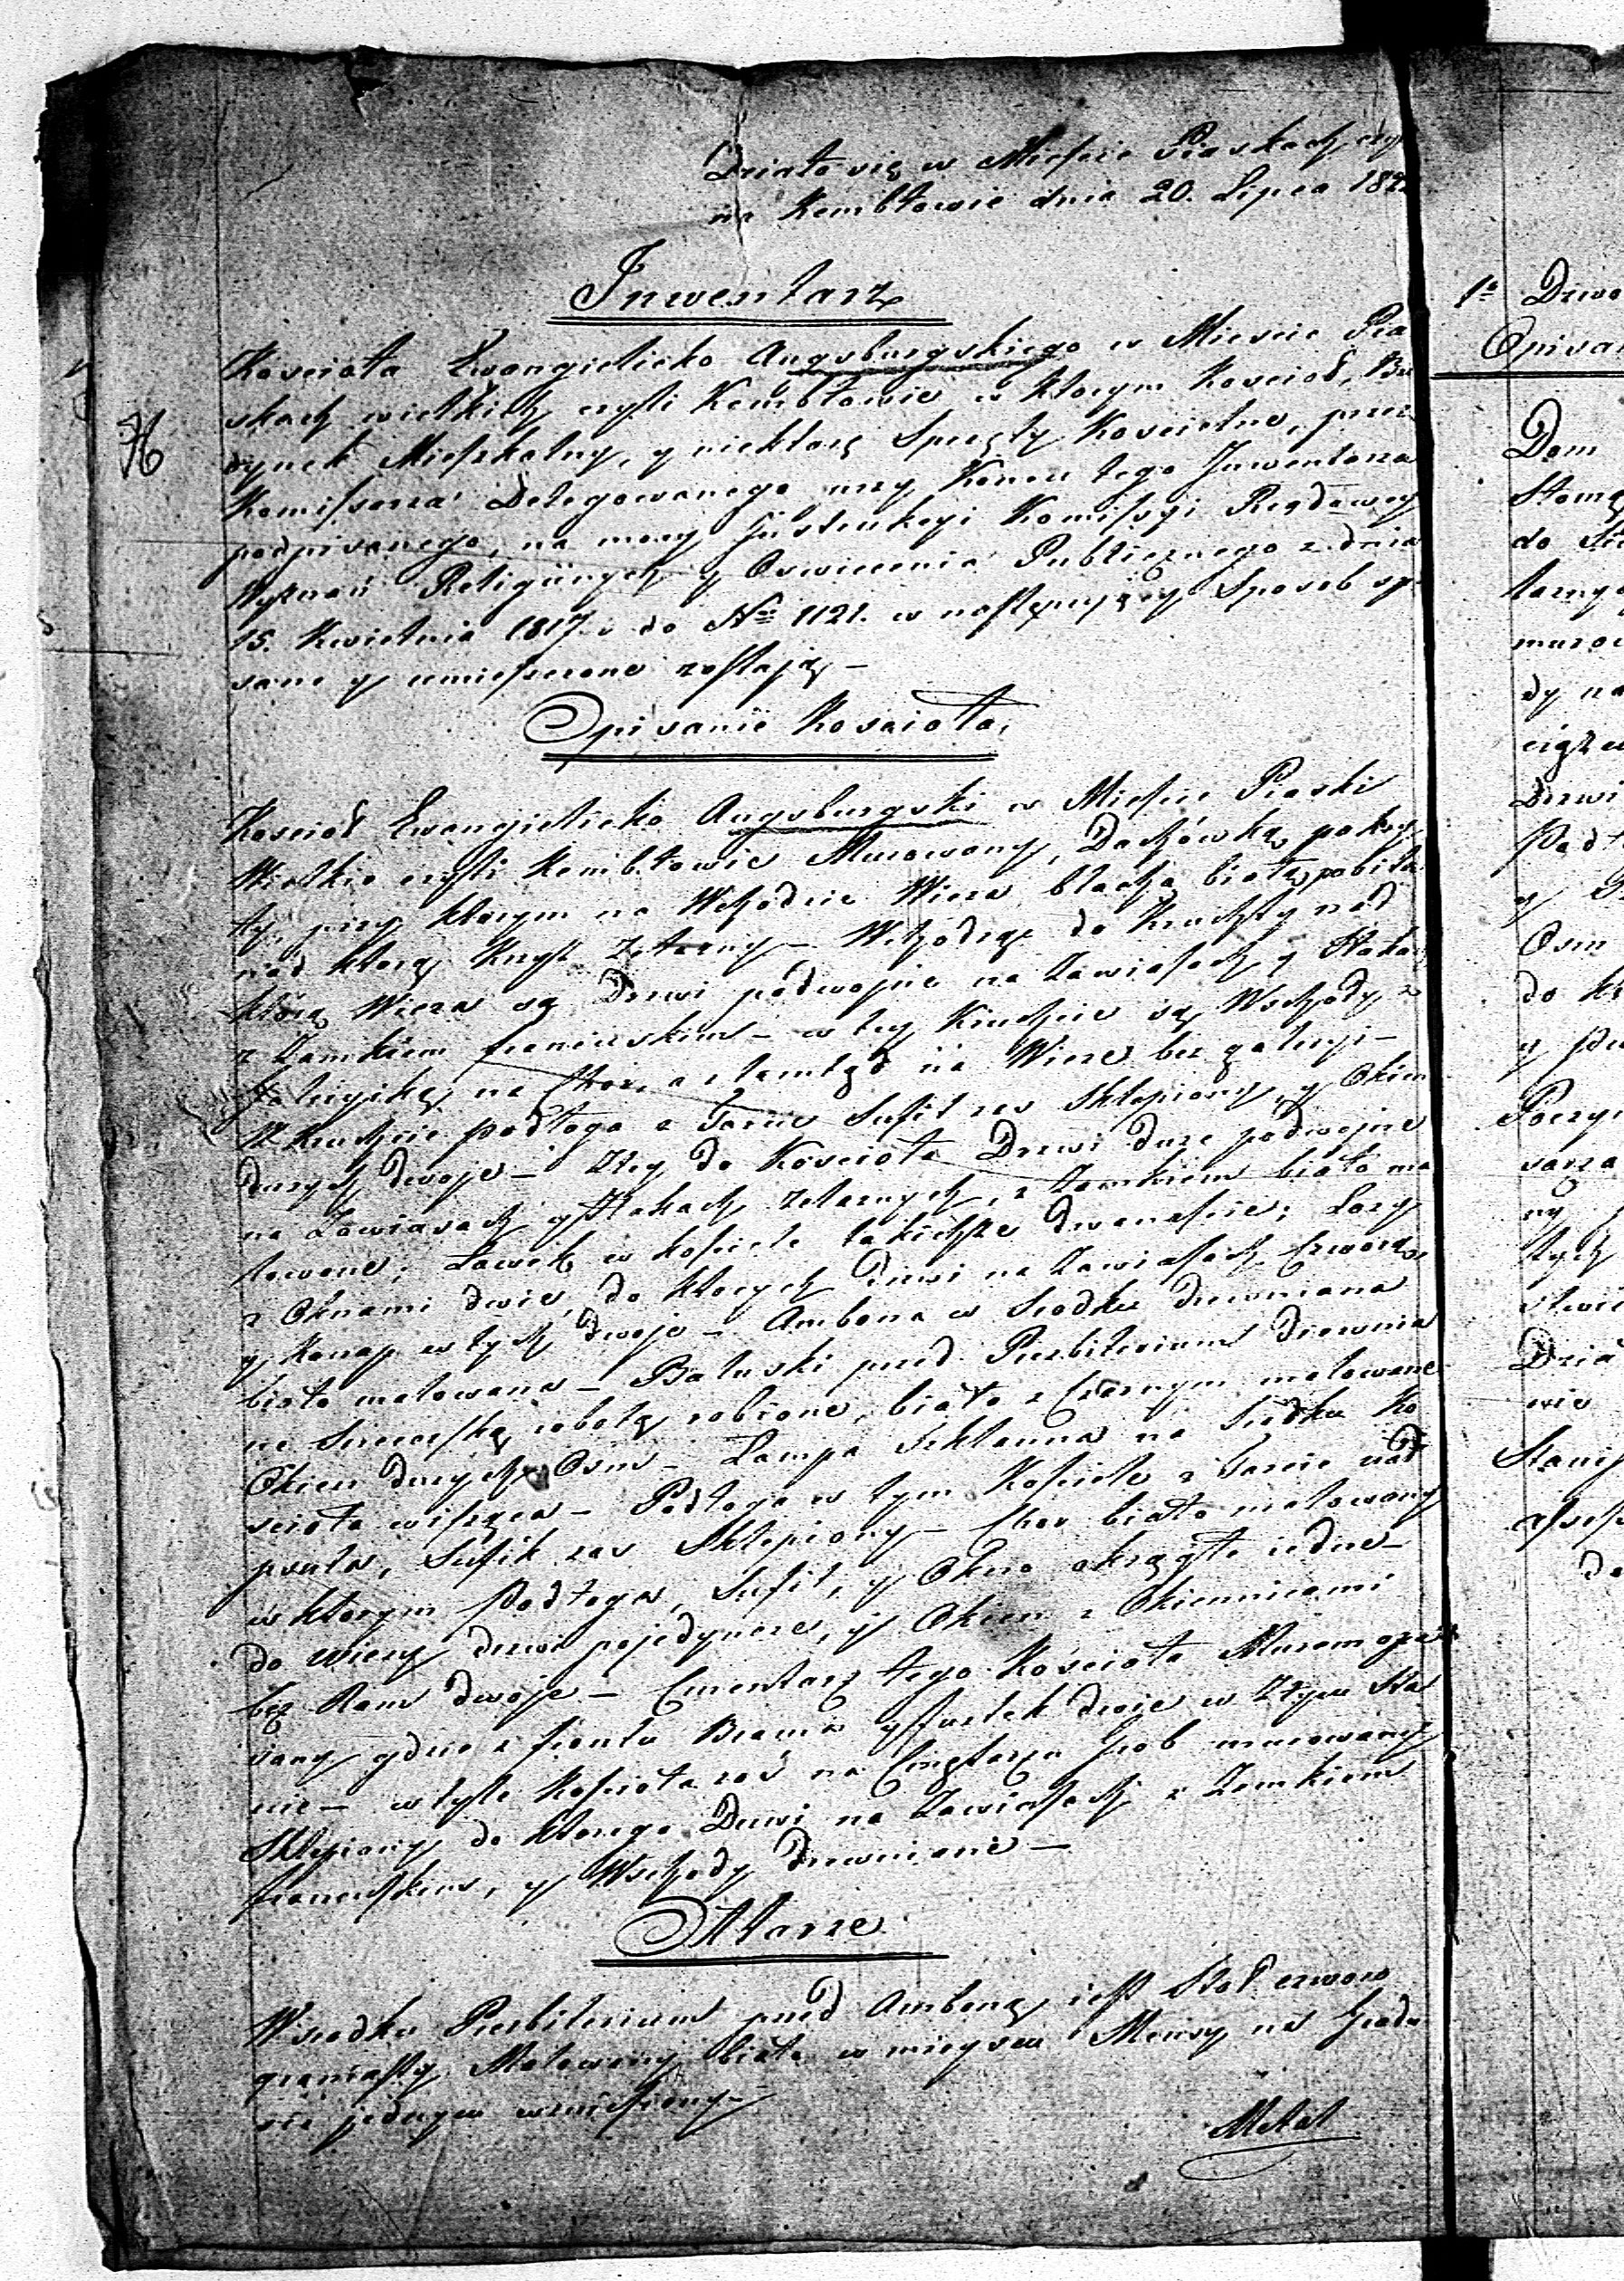 Działo się w Mieście Piaskach czy
na Kembłowie dnia 20. Lipca 182
Inwentarz
Kościoła Ewangielicko Augsburgskiego w Mieście Pia
skach wielkich czyli Kembłowie w którym Kościoł, Bu
dynek Mieszkalny, y niektorę Sprzęty Kościelne, przez
Komissarza Delegowanego przy Koncu tego Inwentarza
podpisanego, na mocy Instrukcyi Komissyi Rządowey
Wyznań Religiinych y Oswiecenia Publicznego z dnia
15. Kwietnia 1817 do No 1121. w następuiący Sposob spi
sane y umieszczone zostają –
Opisanie Kościoła,
Kościoł Ewangielicko Augsburgski w Mieście Piaski
Wielkie czyli Kembłowie Murowany, Dachówką pokry
ty, przy którym na Wschodzie Wieza blachą białą pobita
nad którą Krzyż Zelazny – Wchodząc do Kruchty nad
którą Wieza są Drzwi podwojne na Zawiasach y Hakach
z Zamkiem francuskim – w tey Kruchcie są Wschody z
na Chor, a stamtąd na Wieze bez galeryi –
W Kruchcie podłoga z Tarcic Sufit zas Sklepiony, y Okien
duzych dwoje – Z tey do Kościoła Drzwi duze podwojne
na Zawiasach y Hakach zelaznych, z Zamkiem biało ma
lowane; Ławek w kościele takichze dwanaście; Lozy
z Oknami dwie, do których Drzwi na Zawiasach Czworo
y Kanap w tych dwoje – Ambona w Srodku drewniana
biało malowana – Balaski przed Prezbiterium drewnia
ne robotą robione, biało z Czarnym malowane
Okien duzych Osm – Lampa Szklanna na Srodku Ko
scioła wisząca – Podłoga w tym Kościele z Tarcic nad
psuta, Sufit zas Sklepiony – Chor biało malowany
w którym Podłoga, Sufit, y Okno okrągłe iedne –
do Wiezy drzwi pojedyncze, y Okien z Okiennicami
bez Ram dwoje – Cmentarz tego Kościoła Murem opa
sany gdzie z frontu Brama y furtek dwie w Złym Sta
nie – w tyle Kościoła zaś na Cmętarzu Grob murowany
Sklepiony do którego Drzwi na Zawiasach z Zamkiem
francuskim, y Wschody drewniane –
Ołtarze
W srodku Prezbiterium przed Amboną iest Stoł czworo
graniasty Malowany biało w mieyscu Mensy na Gradu
sie jednym wzniesiony –
1o Drzwo
Opisan
Dom
do
dy na
Drzwi
Podł
Osm
do kt
tych
Dzia
nie